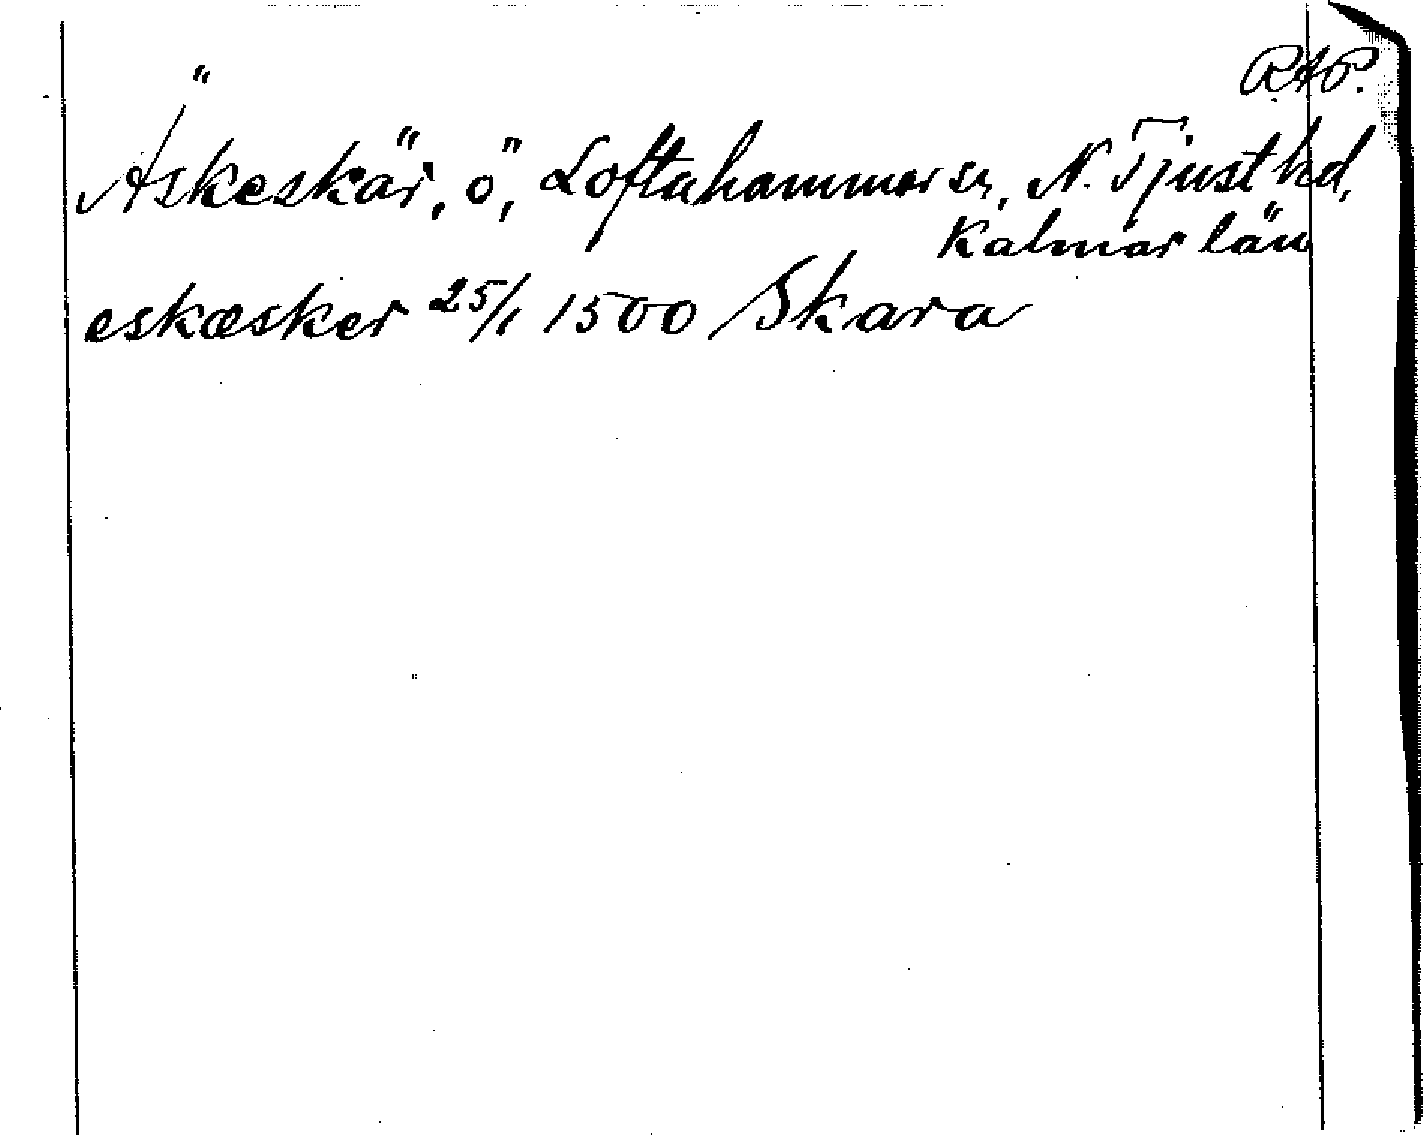 RAP.
Äskeskär, ö, Loftahammar sn, N. Tjust hd,
Kalmar län
eskæsker 25/1 1500 Skara